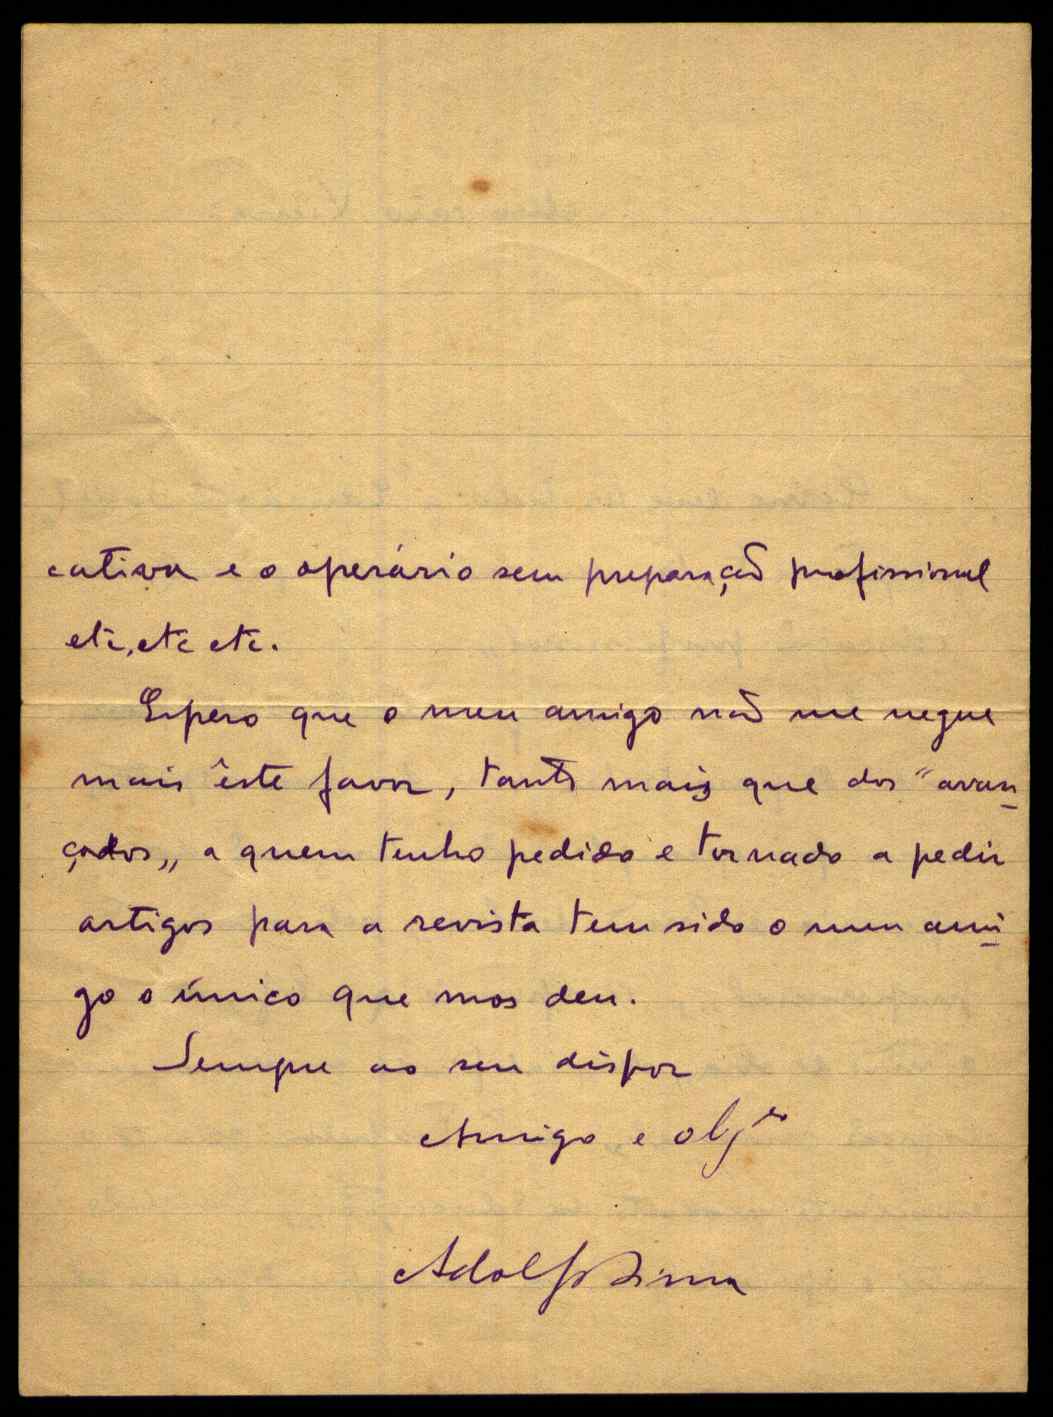 cativa e o operário sem preparação profissional
etc, etc etc.
Espero que o meu amigo não me negue
mais êste favor, tanto mais que dos "avan-
çados„ a quem tenho pedido e tornado a pedir
artigos para a revista tem sido o meu ami-
go o único que mos deu.
Sempre ao seu dispor
Amigo e obgdo
Adolfo Lima